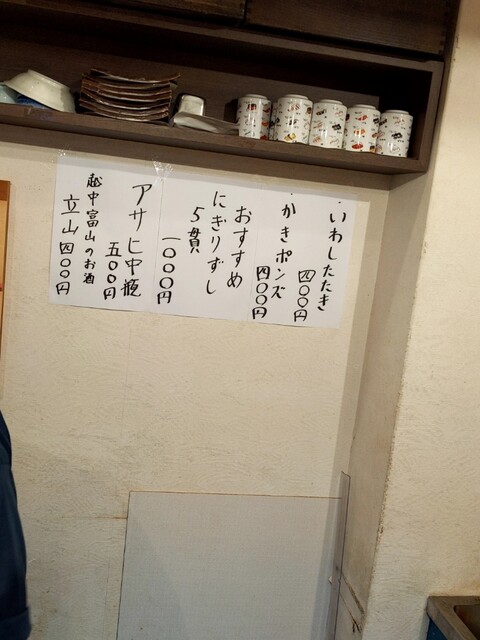 ・いわしたたき
四〇〇円
・かきポンズ
四〇〇円
おすすめ
にぎりずし
5貫
一〇〇〇円
アサヒ中瓶
五〇〇円
越中富山のお酒
立山四〇〇円